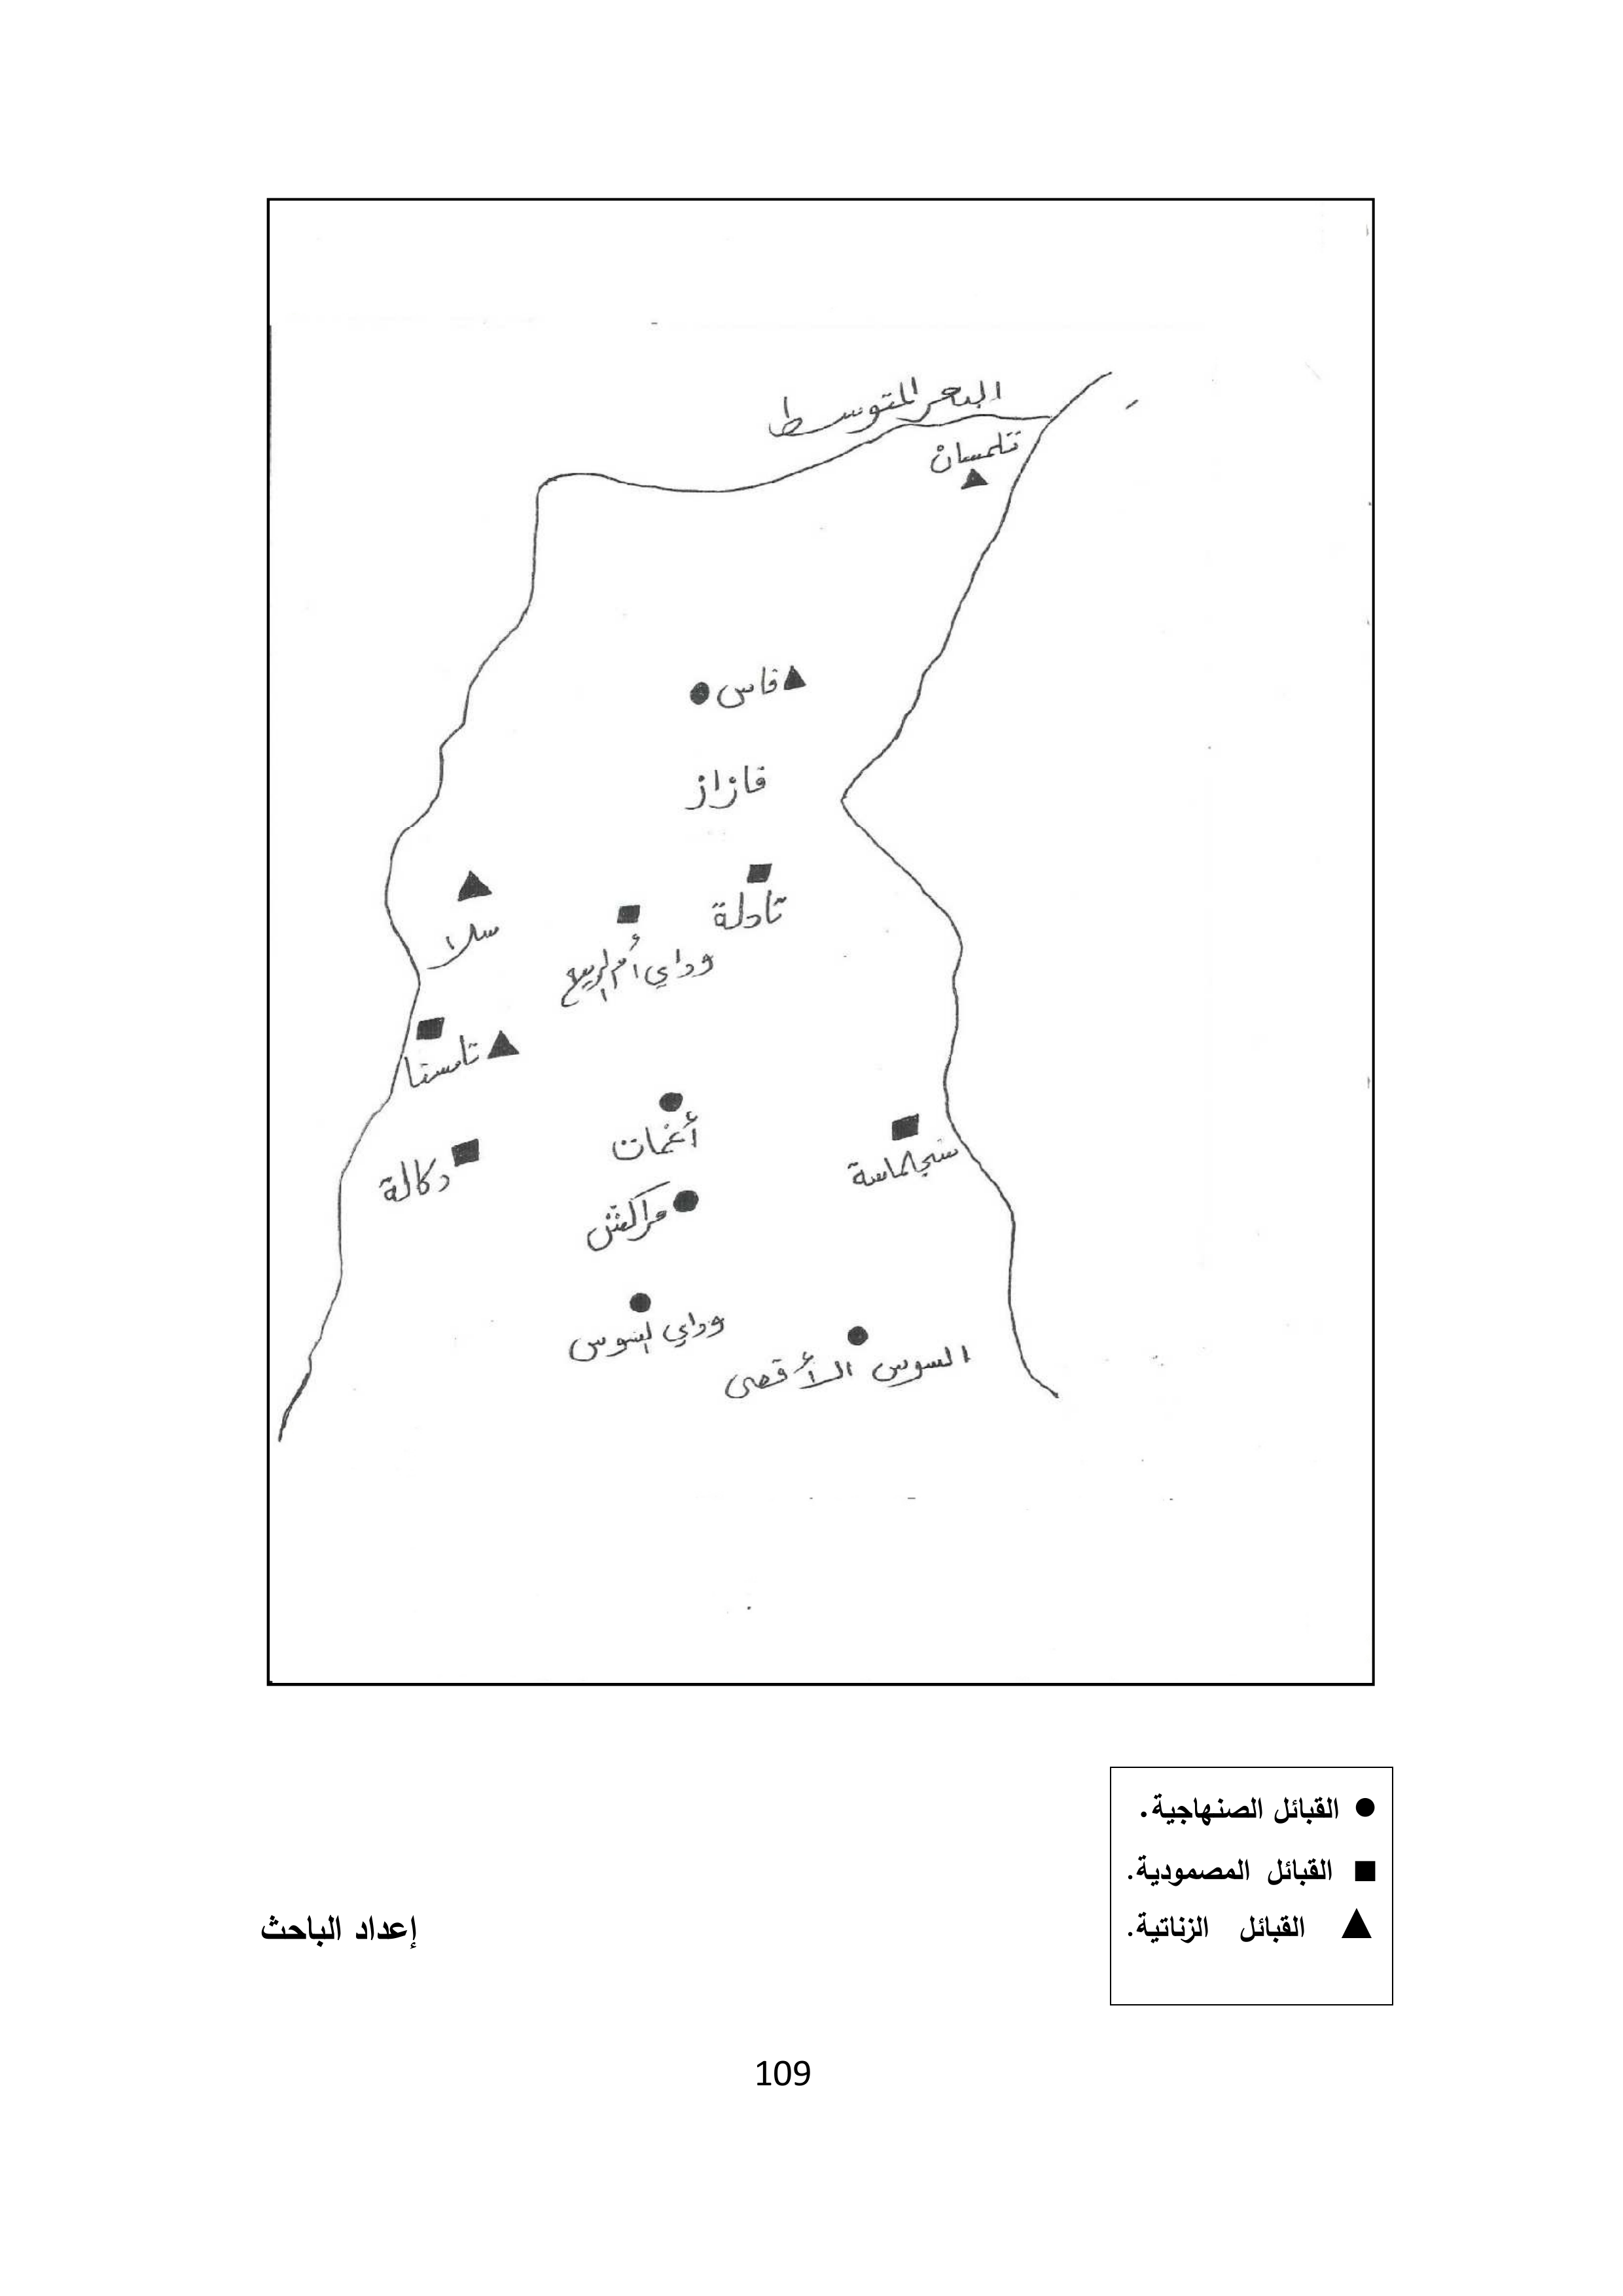 البحر المتوسط
تتلمسان
فاس
فازاز
تادلة
سلا
وداي أم الربيع
تامسنا
أغمات
سجلماسة
دكالة
مراكش
وداي السوس
السوس الأقصى
● القبائل الصنهاجية.
■ القبائل المصمودية.
▲ القبائل الزناتية.
إعداد الباحث
109